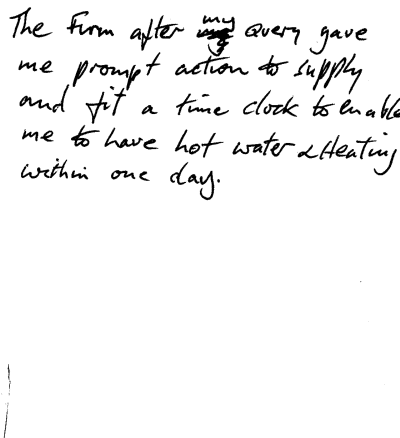 The Firm after my Query gave
me prompt action to supply
and fit a time clock to enable
me to have hot water & Heating
within one day.